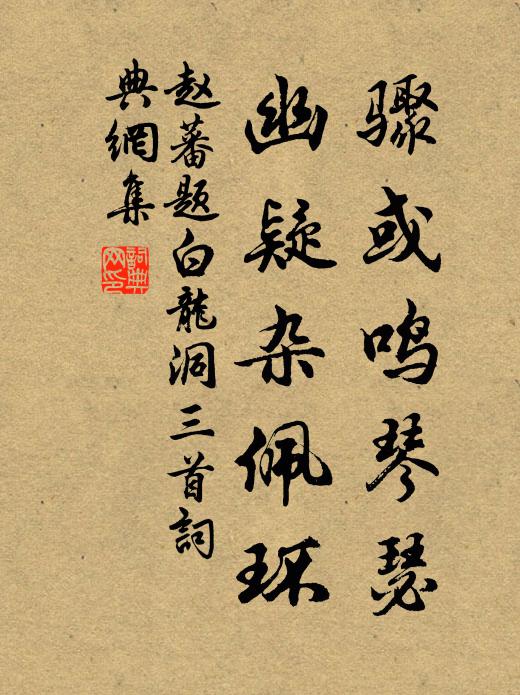 骤或鸣琴瑟
幽疑杂佩环
赵蕃题白龍洞三首詞
典網集
詞典
网印